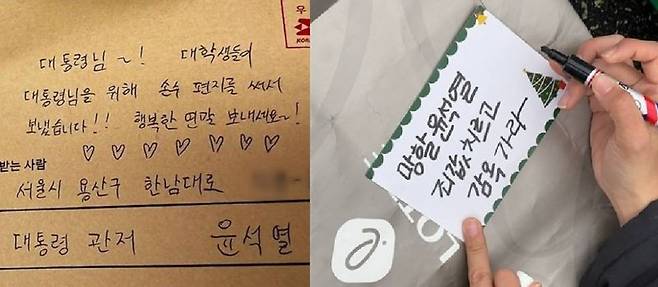 우
KOR
대통령님 ~! 대학생들이
대통령님을 위해 손수 편지를 써서
보냈습니다!! 행복한 연말 보내세요~!
♡ ♡ ♡ ♡ ♡ ♡ ♡
받는 사람
서울시 용산구 한남대로
대통령 관저 윤석열
망할 윤석열
죄값 치르고
감옥 가라~